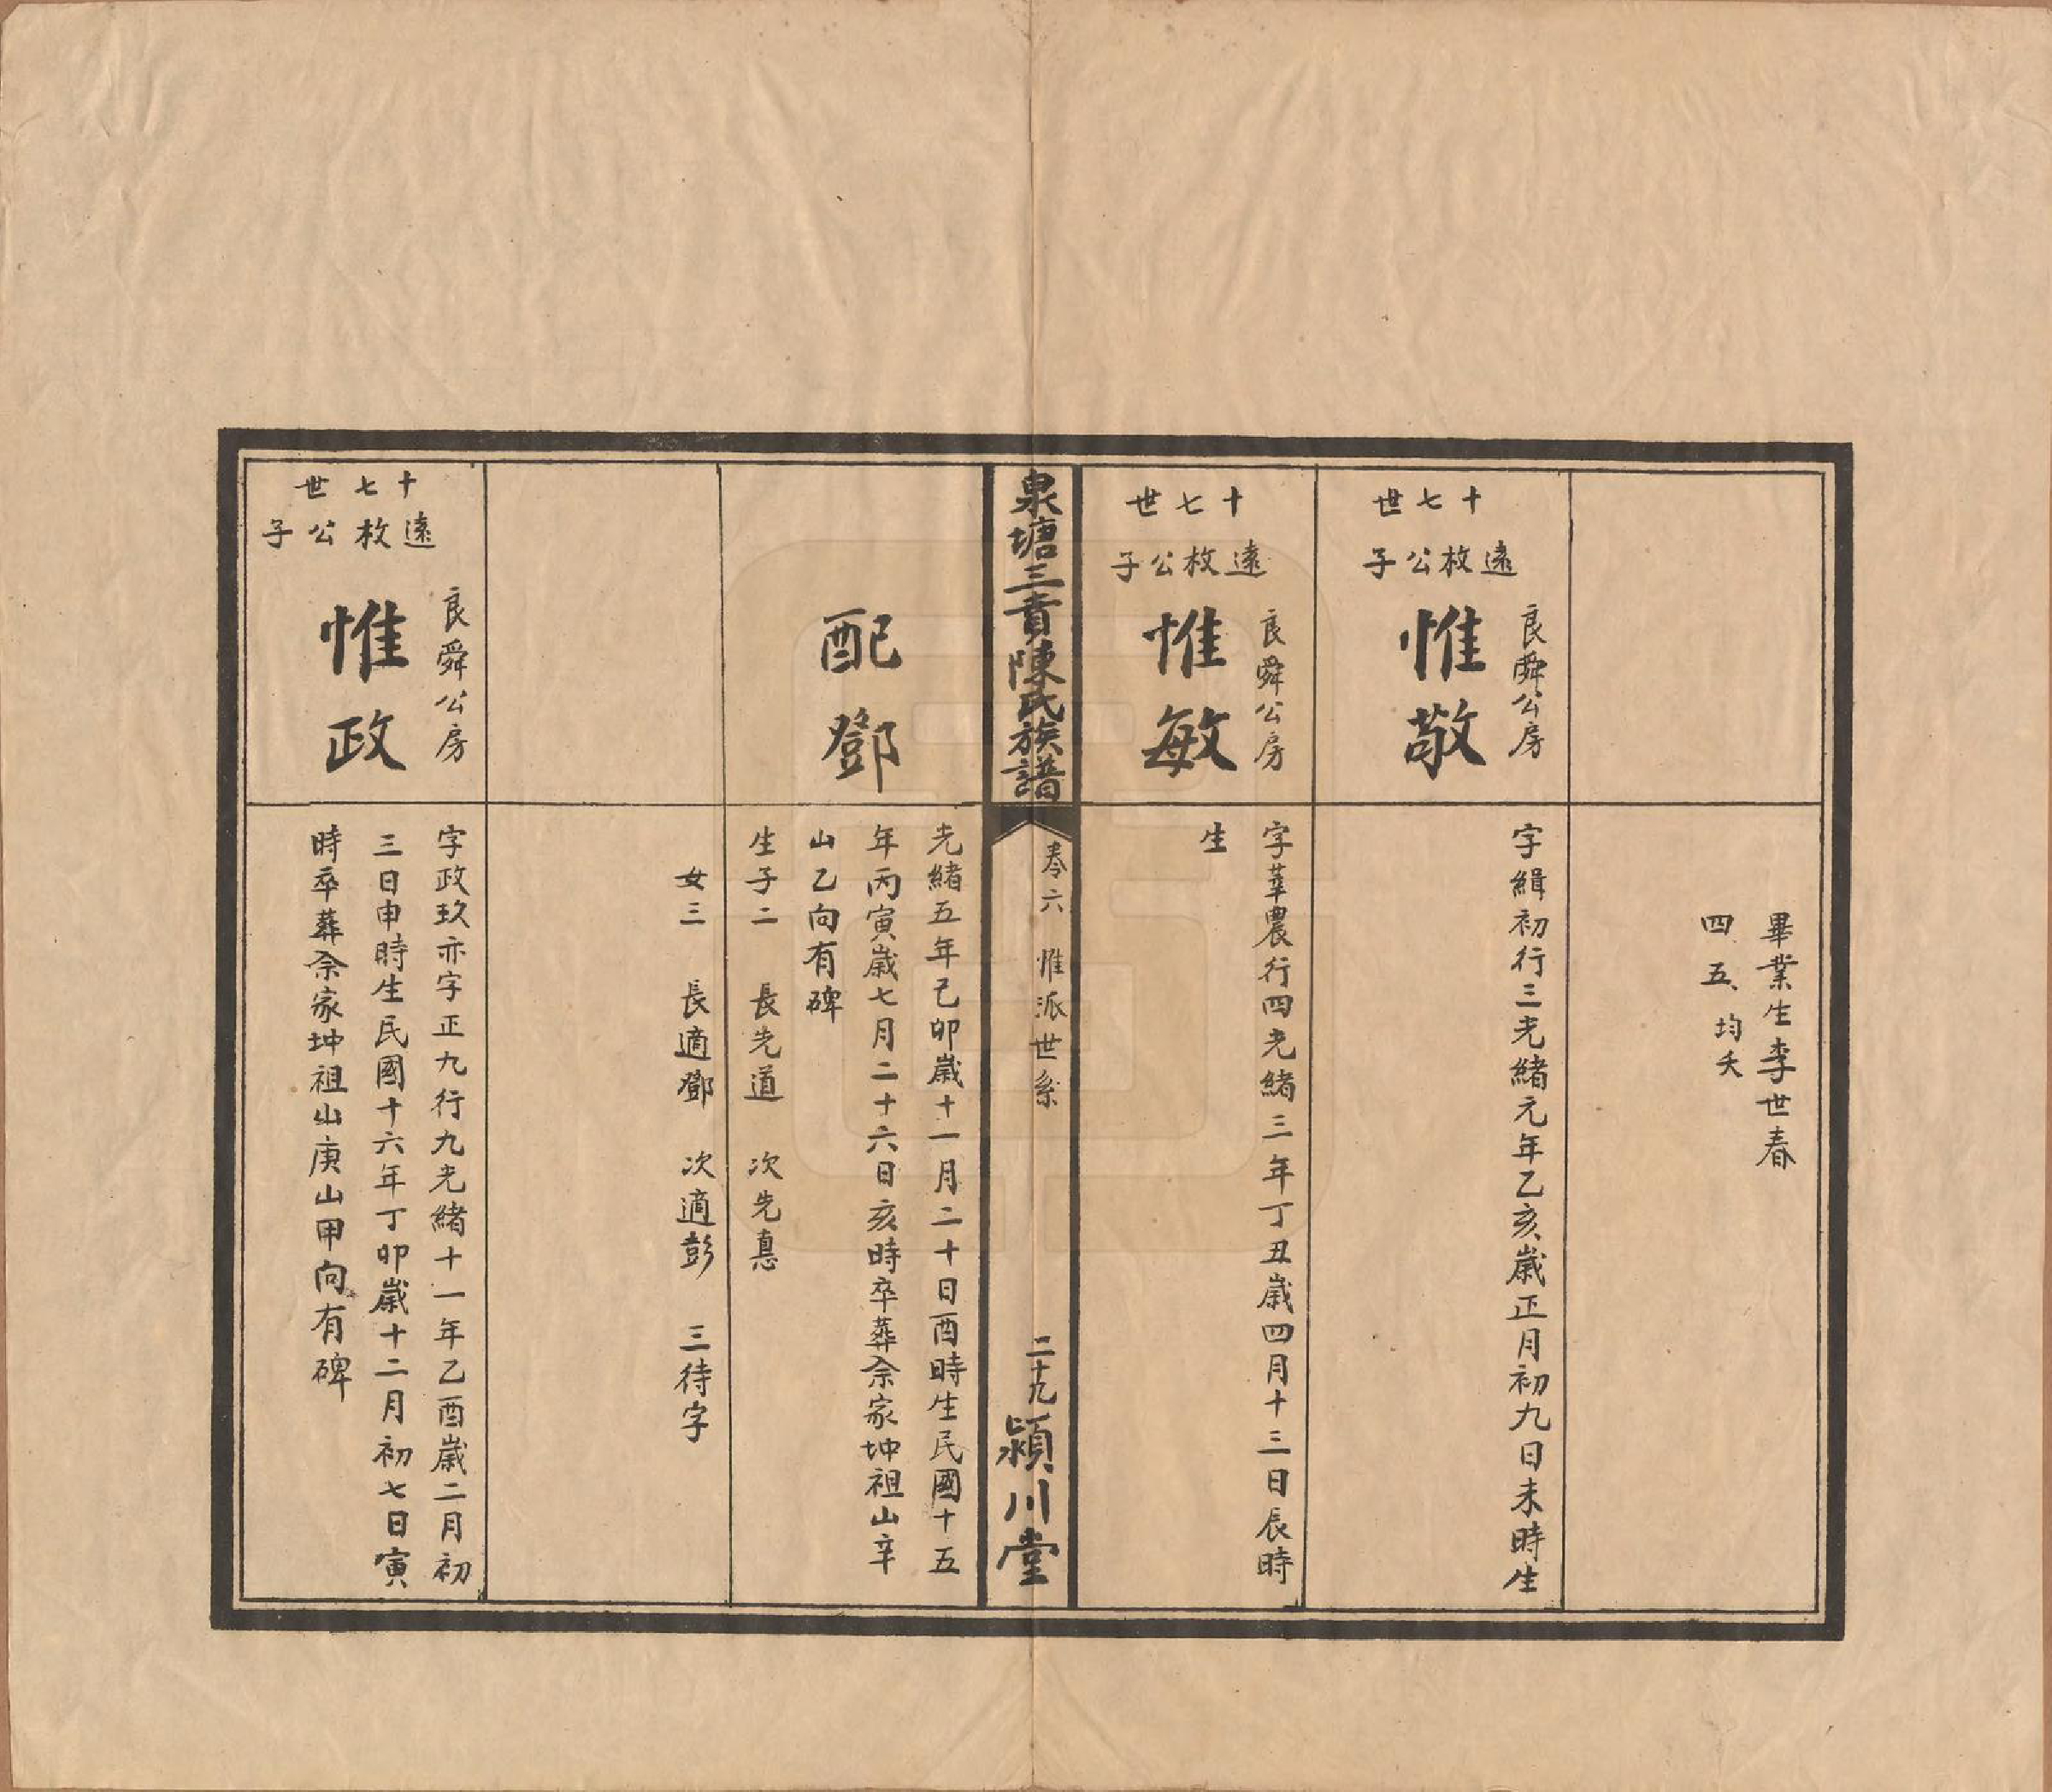 畢業生李世春
四五均夭
十七世
遠枚公子
良舜公房
惟敬
字緝初行三光緒元年乙亥歲正月初九日未時生
十七世
遠枚公子
良舜公房
惟敏
字莘農行四光緒三年丁丑歲四月十三日辰時
生
泉塘三賁陳氏族譜
卷六 惟派世系
二十九
潁川堂
配鄧
光緒五年己卯歲十一月二十日酉時生民國十五
年丙寅歲七月二十六日亥時卒葬佘家坤祖山辛
山乙向有碑
生子二 長先道 次先惪
女三 長適鄧 次適彭 三待字
十七世
遠枚公子
良舜公房
惟政
字政玖亦字正九行九光緒十一年乙酉歲二月初
三日申時生民國十六年丁卯歲十二月初七日寅
時卒葬佘家坤祖山庚山甲向有碑